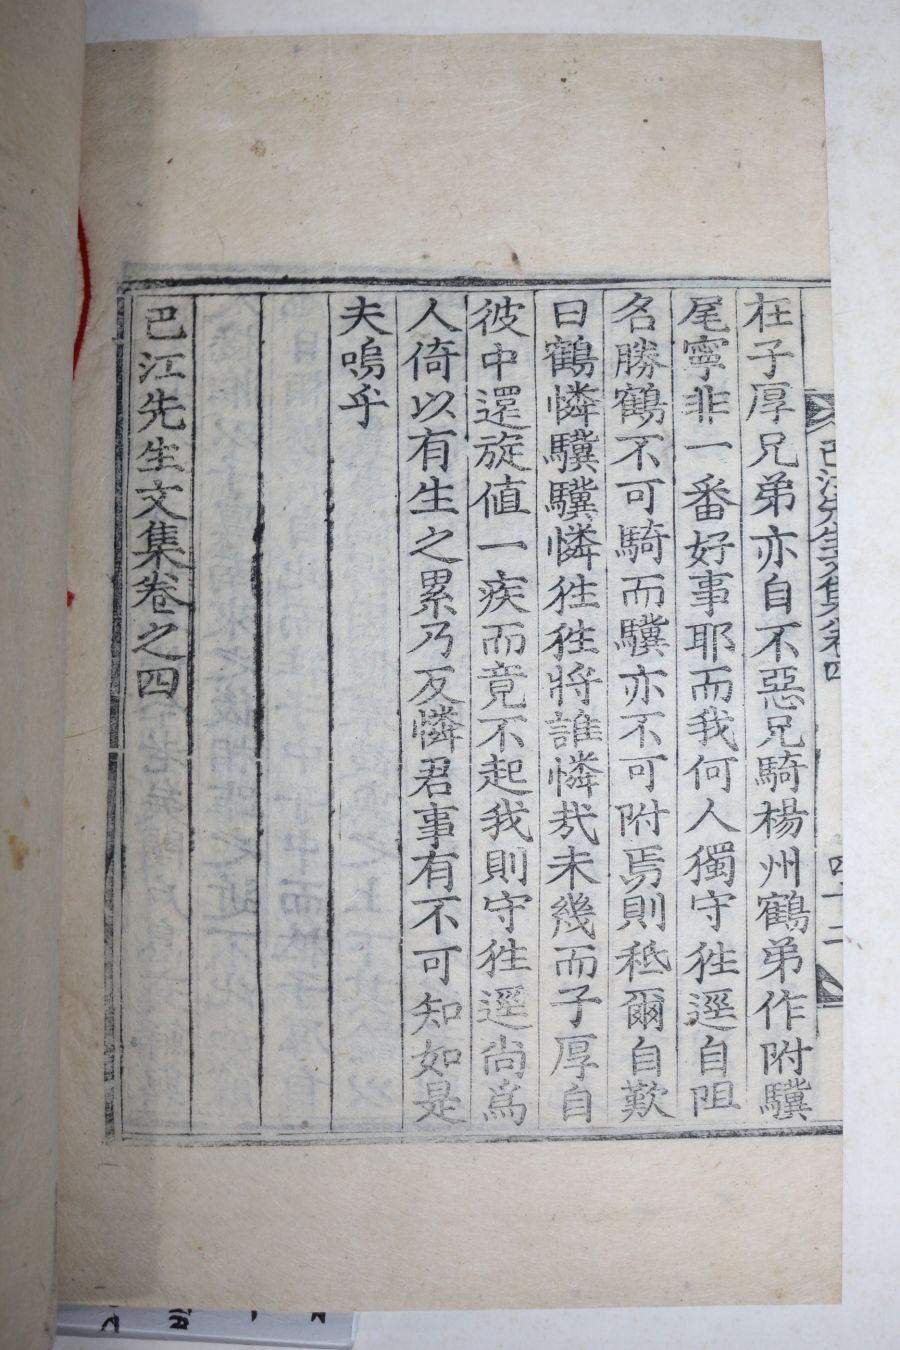 巴江先生文集卷四
四十二
在子厚兄弟亦自不惡兄騎楊州鶴弟作附驥
尾寧非一番好事耶而我何人獨守徃逕自阻
名勝鶴不可騎而驥亦不可附焉則秪爾自歎
曰鶴憐驥驥憐徃徃將誰憐㢤未幾而子厚自
彼中還旋值一疾而竟不起我則守徃逕尚爲
人倚以有生之累乃反憐君事有不可知如是
夫嗚乎
巴江先生文集卷之四